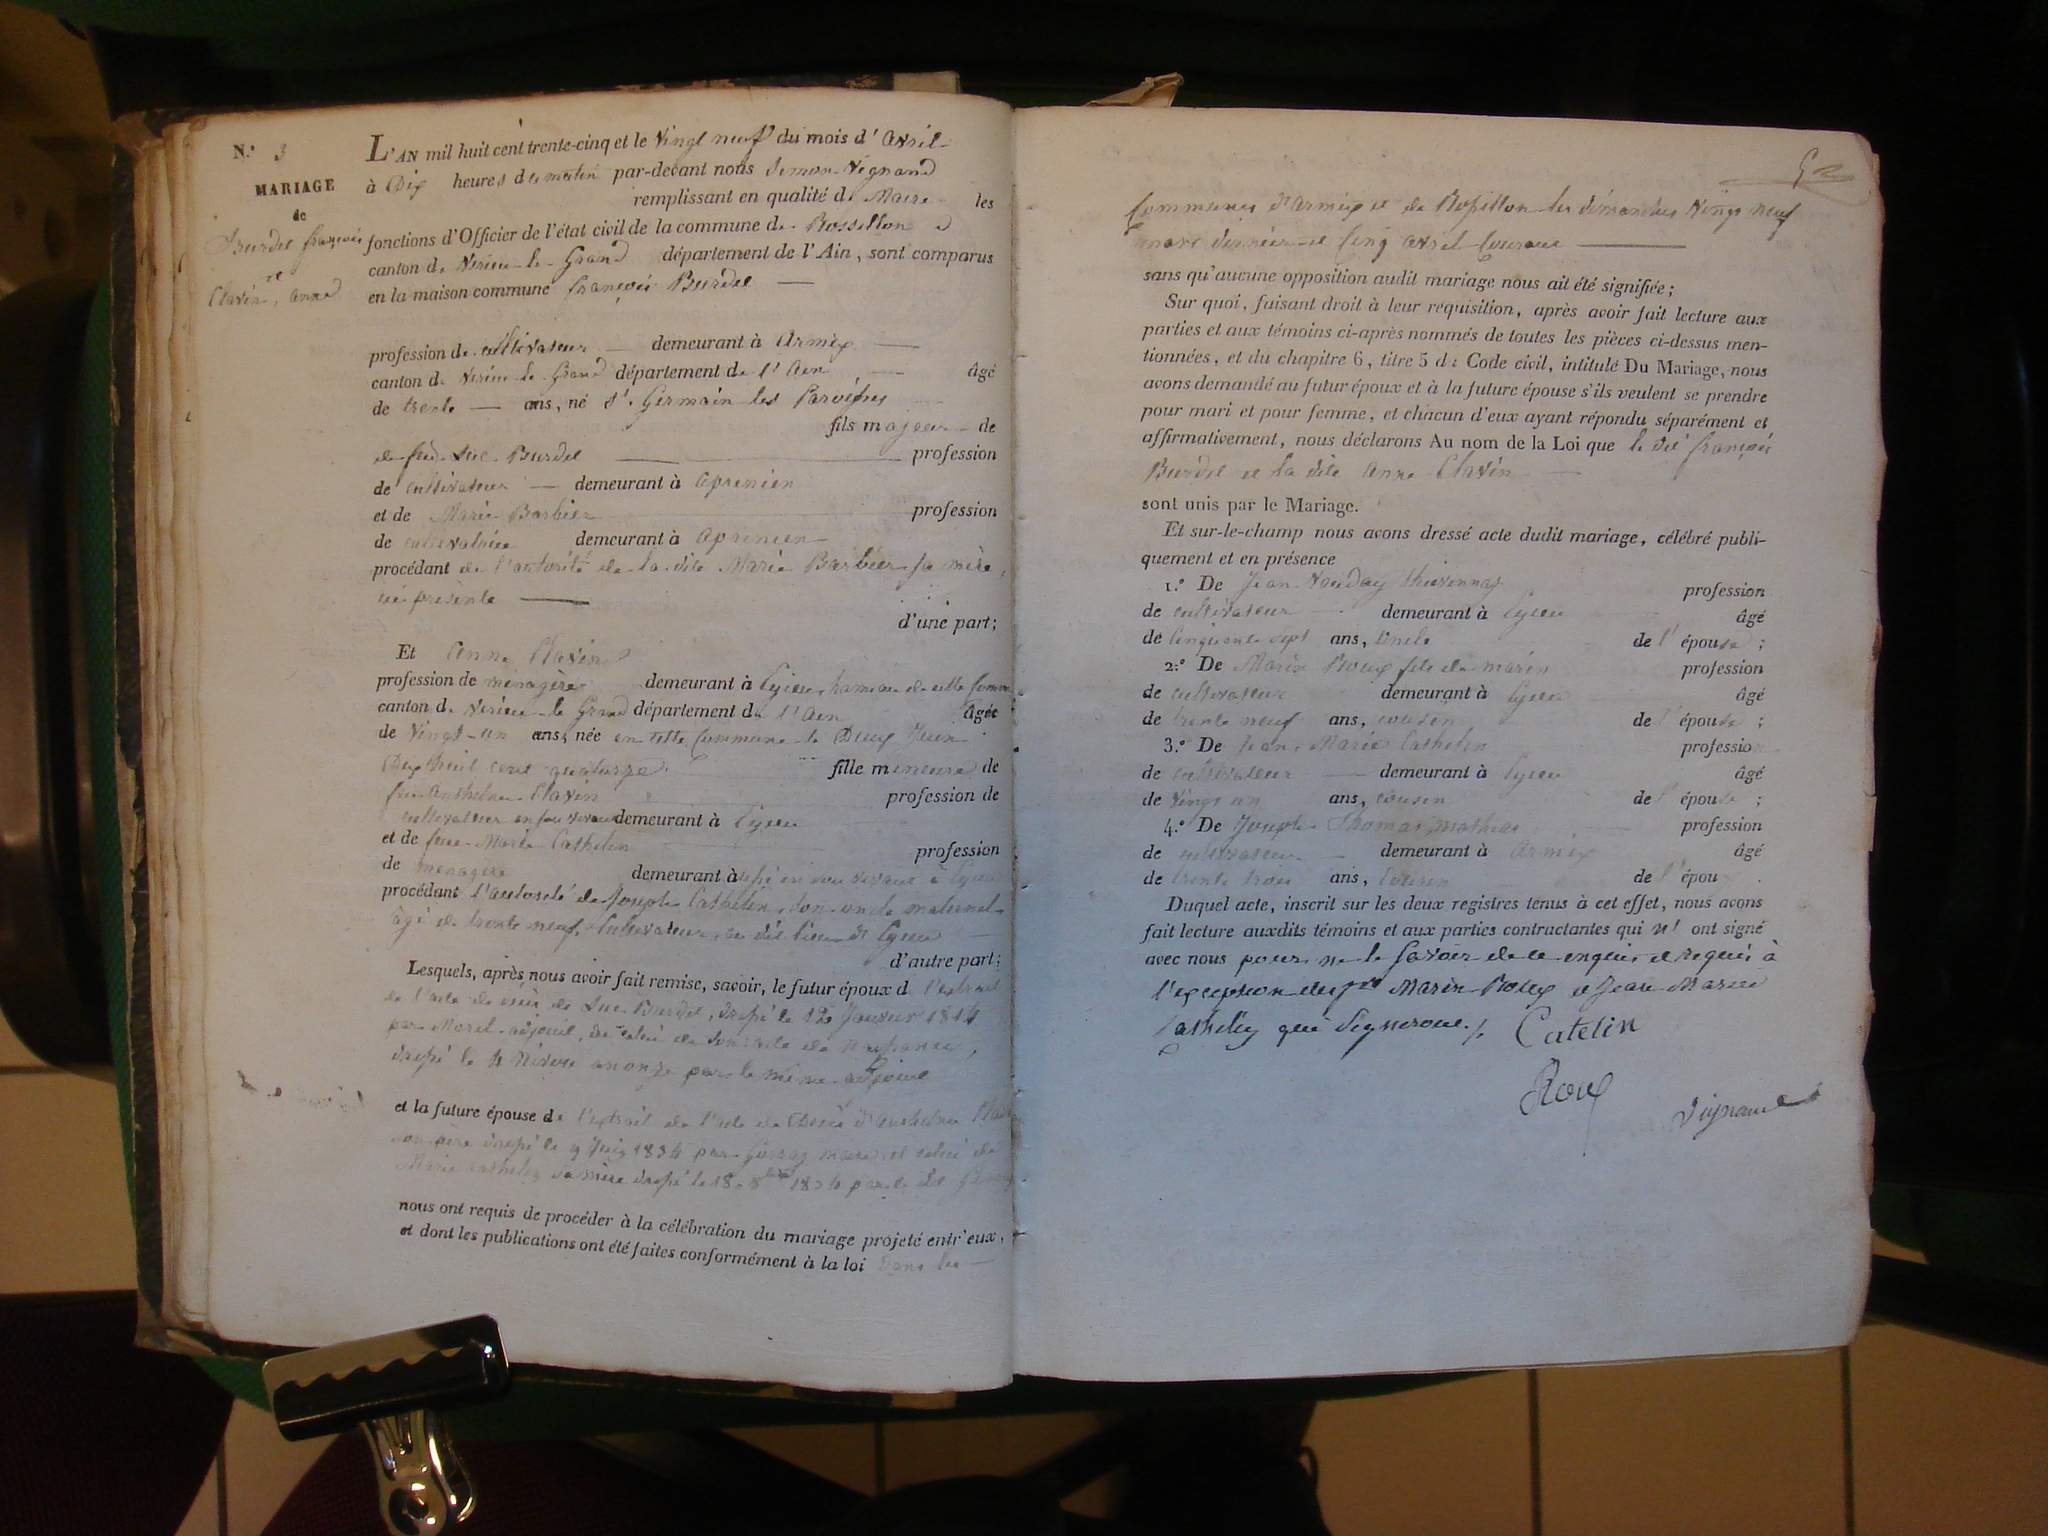 N.° 3
MARIAGE
de
Burdet françois
et
Clavin, anne
L'AN mil huit cent trente-cinq et le Vingt neuf du mois d'avril
à Dix heures du matin par-devant nous Simon Vignand
remplissant en qualité de Maire les
fonctions d'Officier de l'état civil de la commune de Rossillon
canton de Virieu-le-Grand département de l'Ain, sont comparus
en la maison commune françois Burdet
profession de cultivateur demeurant à Armix
canton de Virieu-le-Grand département de l'Ain âgé
de trente ans, né St. Germain les Paroisses
fils majeur de
de feu Luc Burdet profession
de cultivateur demeurant à apremien
et de Marie Barbier profession
de cultivatrice demeurant à apremien
procédant de l'autorité de la dite Marie Barbier sa mère,
ici présente
d'une part;
Et Anne Clavin
profession de ménagère demeurant à Cyzieu hameau de cette Commune
canton de Virieu-le-Grand département de l'Ain âgée
de Vingt-un ans, née en cette Commune le Deux Juin
Dix huit cent quatorze fille mineure de
feu Anthelme Clavin profession de
cultivateur en son vivant demeurant à Cyzieu
et de feue Marie Cathelin profession
de ménagère demeurant à en son vivant à Cyzieu
procédant l'autorité de Joseph Cathelin, son oncle maternel
âgé de trente neuf, Cultivateur, au dit lieu de Cyzieu
d'autre part;
Lesquels, après nous avoir fait remise, savoir, le futur époux d l'extrait
de l'acte de décès de Luc Burdet, dressé le 12 Janvier 1814
par Morel adjoint, de celui de son acte de naissance,
dressé le 4 Nivose an onze par le même adjoint
et la future épouse de l'extrait de l'acte de Décès d'anthelme Clavin
son père dressé le 9 Juin 1834 par maire et celui de
Marie Cathelin sa mère dressé le 18 1834 par le dit
nous ont requis de procéder à la célébration du mariage projeté entr'eux,
et dont les publications ont été faites conformément à la loi dans les
Communes d'armix et de Rossillon les dimanches Vingt neuf
mars dernier et Cinq avril Courant
sans qu'aucune opposition audit mariage nous ait été signifiée;
Sur quoi, faisant droit à leur réquisition, après avoir fait lecture aux
parties et aux témoins ci-après nommés de toutes les pièces ci-dessus men-
tionnées, et du chapitre 6, titre 5 du Code civil, intitulé Du Mariage, nous
avons demandé au futur époux et à la future épouse s'ils veulent se prendre
pour mari et pour femme, et chacun d'eux ayant répondu séparément et
affirmativement, nous déclarons Au nom de la Loi que le dit françois
Burdet et la dite anne Clavin
sont unis par le Mariage.
Et sur-le-champ nous avons dressé acte dudit mariage, célébré publi-
quement et en présence
1.° De Jean profession
de cultivateur demeurant à Cyzieu âgé
de Cinquante sept ans, Oncle de l'épouse;
2.° De Marin Roux fils de marin profession
de cultivateur demeurant à Cyzieu âgé
de trente neuf ans, cousin de l'épouse;
3.° De Jean Marie Cathelin profession
de cultivateur demeurant à Cyzieu âgé
de Vingt un ans, cousin de l'épouse;
4.° De Joseph Thomas mathias profession
de cultivateur demeurant à armix âgé
de trente trois ans, Cousin de l'épou
Duquel acte, inscrit sur les deux registres tenus à cet effet, nous avons
fait lecture auxdits témoins et aux parties contractantes qui n' ont signé
avec nous pour ne le savoir de ce enquis et requis à
l'exception des Marin Roux et Jean Marie
Cathelin qui signeront. Catelin
Roux
Vignand